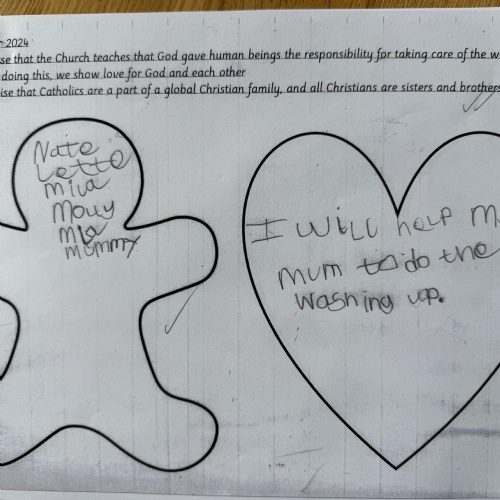 2024
se that the Church teaches that God gave human beings the responsibility for taking care of the w
doing this, we show love for God and each other
ise that Catholics are a part of a global Christian family, and all Christians are sisters and brothers
Nate
Lette
Mila
Molly
Mia
Mummy
I Will help M
mum to do the
washing up.